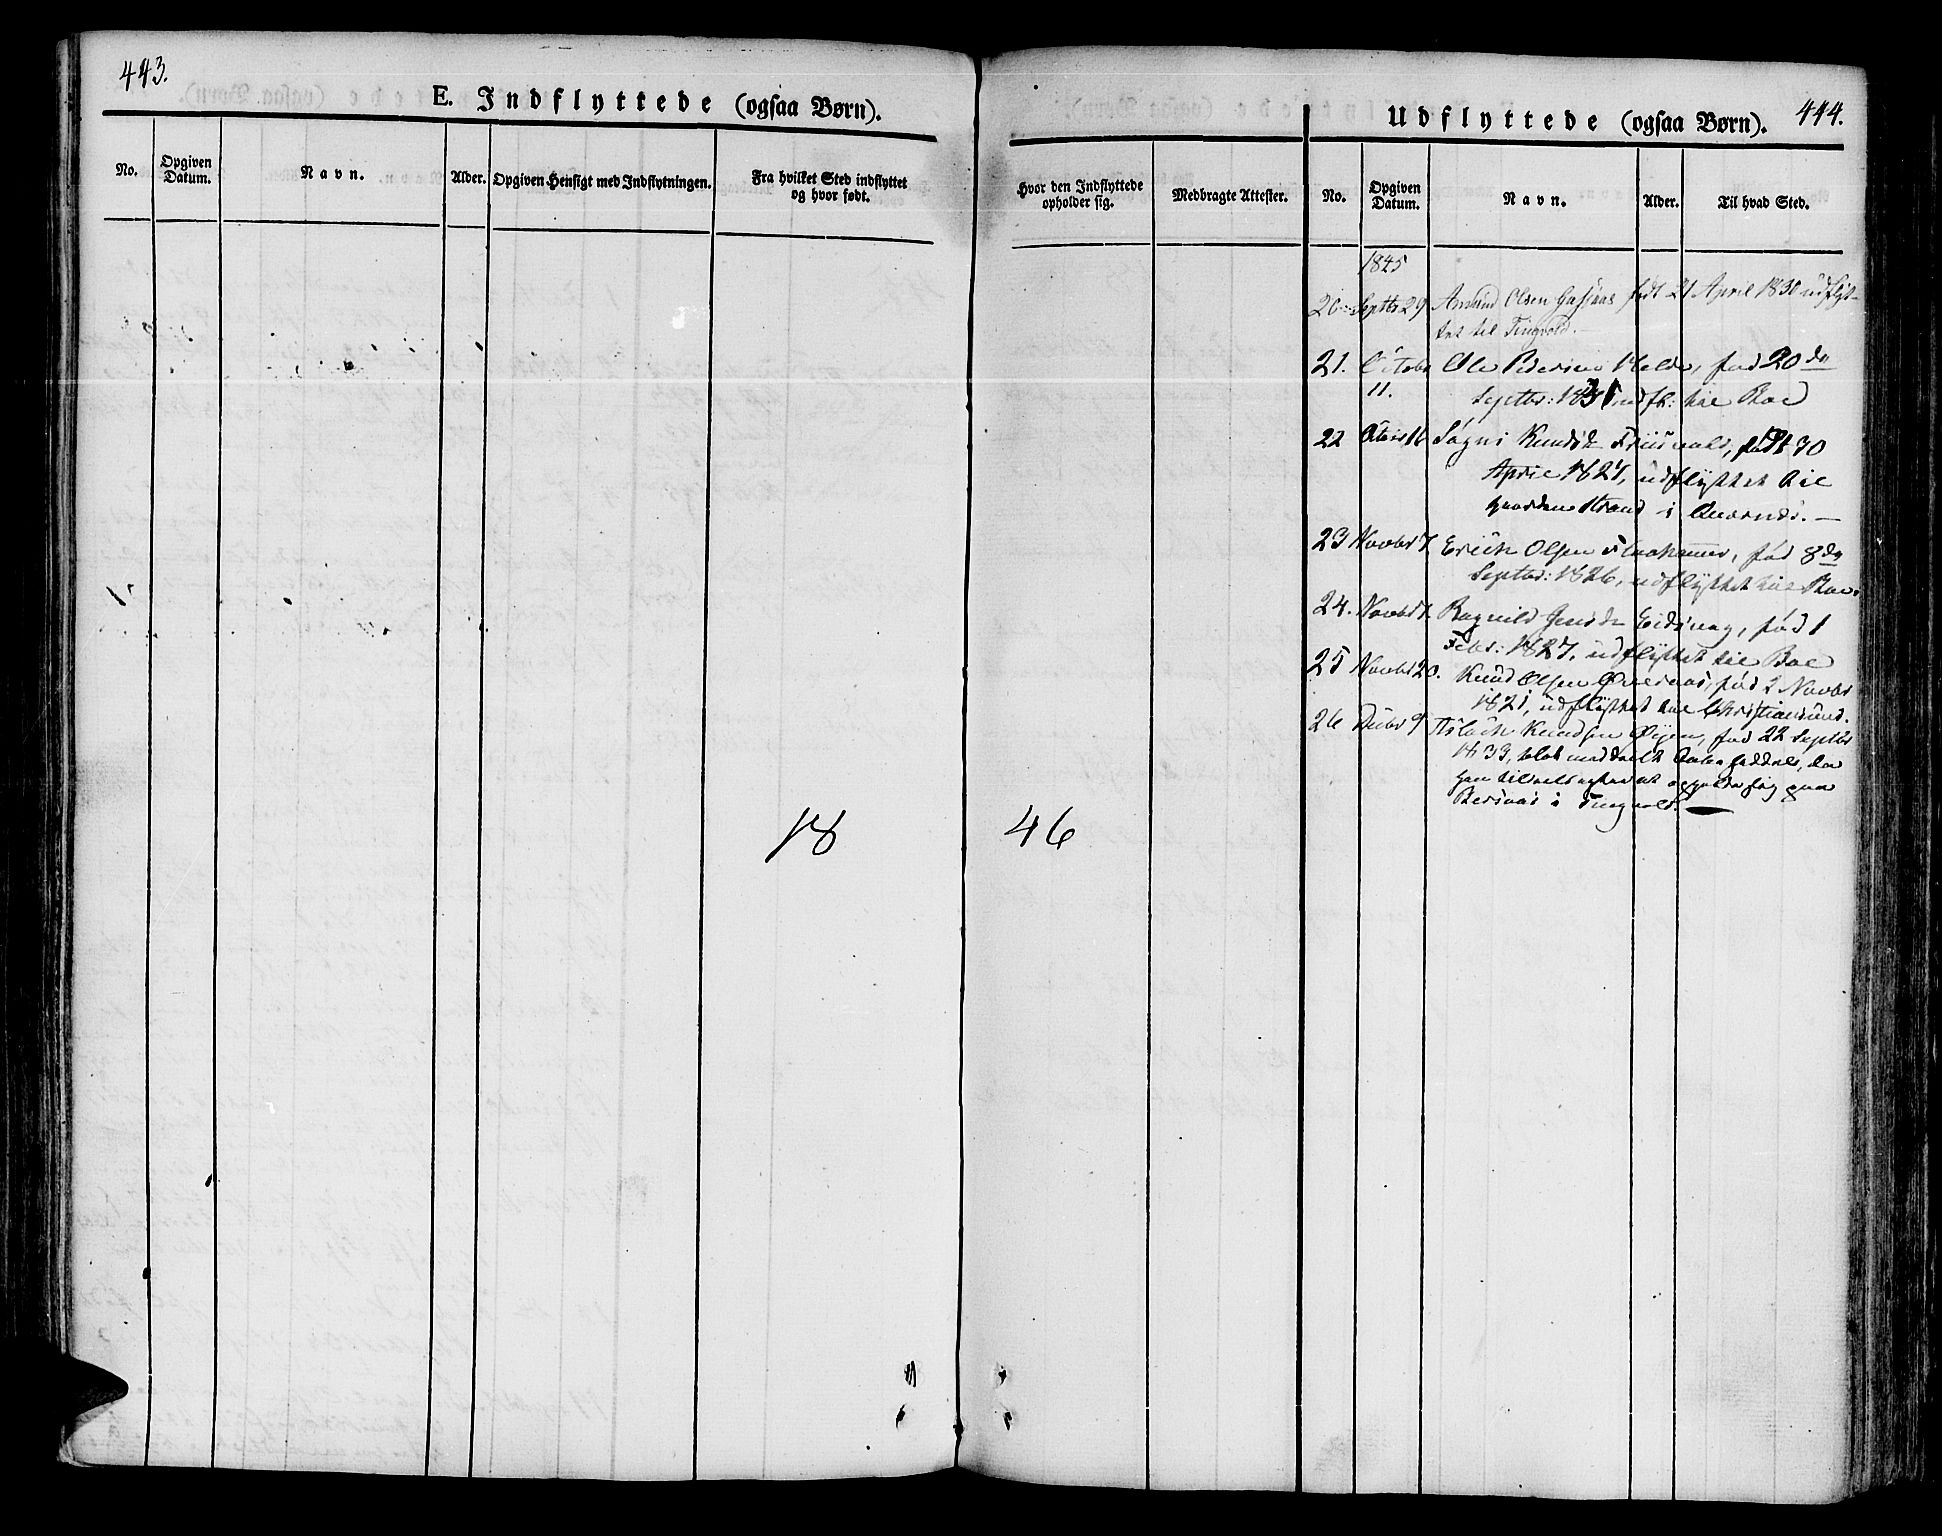 443.
E. Indflyttede (ogsaa Børn).
No.
Opgiven Datum.
Navn.
Alder.
Opgiven Hensigt med Indflytningen.
Fra hvilket Sted indflyttet og hvor født.
18
Udflyttede (ogsaa Børn).
444.
Hvor den Indflyttede opholder sig.
Medbragte Attester.
No.
Opgiven Datum.
Navn.
Alder.
Til hvad Sted.
46
1845
20 Septbr 29 Amund Olsen født 21 April 1830 udflyt-
tet til Tingvold.
21. Octobr Ole Pedersen fød 20de
11. Septbr: 1831 udfl: til Boe
22 Octbr 16 Knudsdr født 30
April 1827, udflyttet til
gaarden Strand i Qvernæs.
23 Novbr 7 Erich Olsen fød 8de
Septbr: 1826, udflyttet til Boe.
24. Novbr 7. Ragnild Eidsvag, fød 1
Febr: 1827, udflyttet til Boe
25 Novbr 20. Knud Olsen fød 2 Novbr
1821, udflyttet til Christiansund.
26 Decbr 9 Aslach Knudsen Øyen, fød 22 Septbr
1833, blot meddeelt da
han at opholde sig paa
i Tingvold.